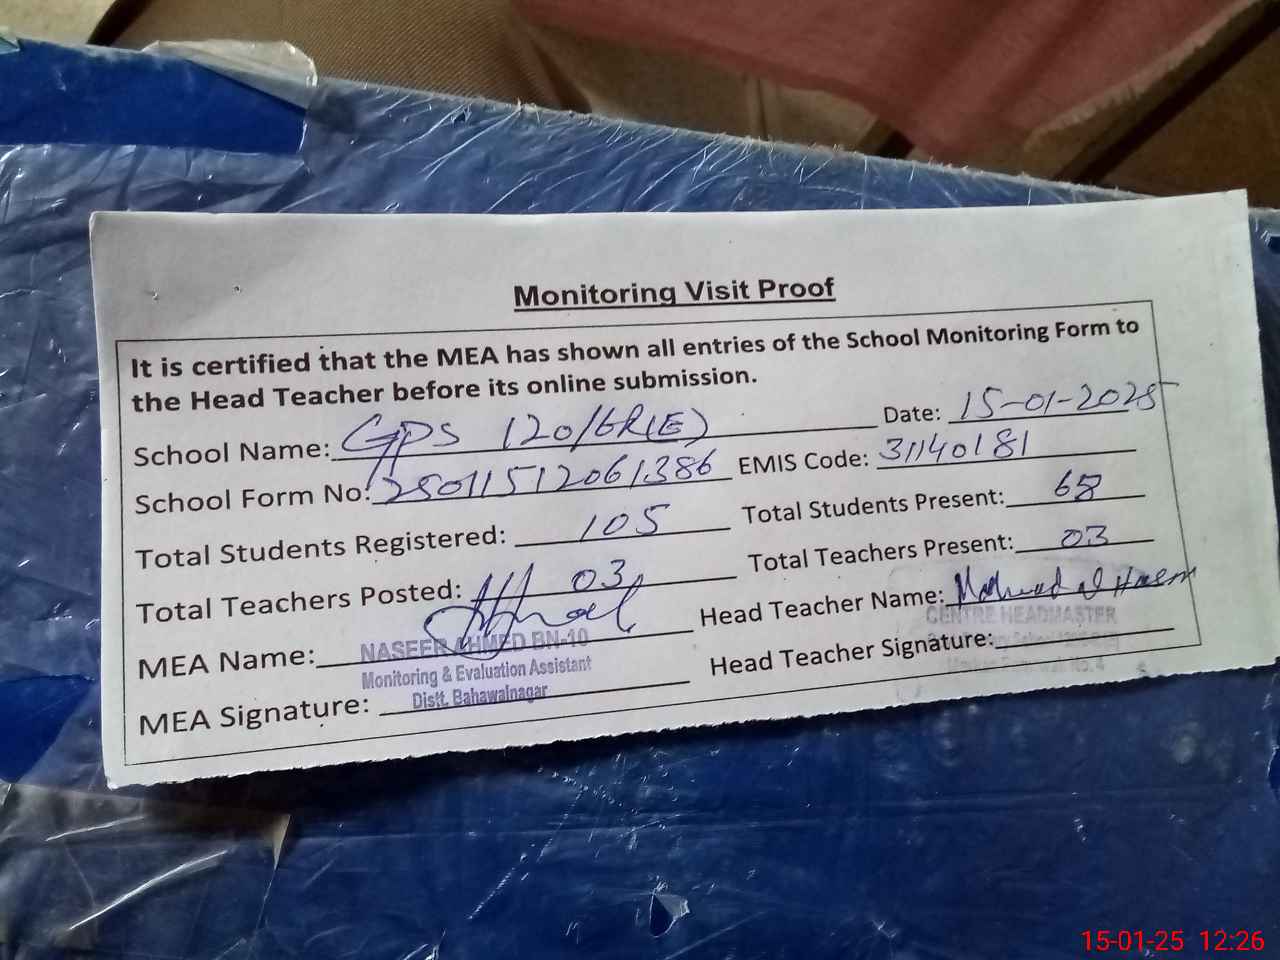 Monitoring Visit Proof
It is certified that the MEA has shown all entries of the School Monitoring Form to
the Head Teacher before its online submission.
School Name: GPS 120/6R(E) Date: 15-01-2025
School Form No: 25011512061386 EMIS Code: 31140181
Total Students Registered: 105 Total Students Present: 68
Total Teachers Posted: 03 Total Teachers Present: 03
MEA Name: Head Teacher Name:
NASEER AHMED BN-10
Monitoring & Evaluation Assistant
Distt. Bahawalnagar
CENTRE HEADMASTER
No. 4
MEA Signature: Head Teacher Signature:
15-01-25 12:26